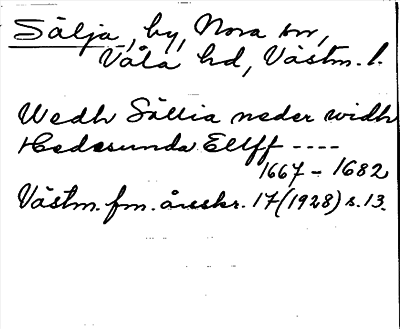 Sälja, by, Nora sn,
Våla hd, Västm. l.
Wedh Sällia neder widh
Hedesunda Ellff ----
1667-1682
Västm. fm. årsskr. 17 (1928) s. 13.